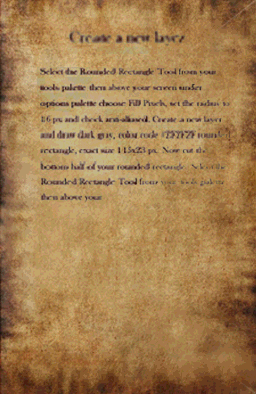 Create a new layer
Select the Rounded Rectangle Tool from your
tools palette then above your screen under
options palette choose Fill Pixels, set the radius to
16 px and check anti-aliased. Create a new layer
and draw dark gray, color code round
rectangle, exact size 145x25 px. Now cut the
bottom half of your rounded rectangle. Select the
Rounded Rectangle Tool from your tools palette
then above your